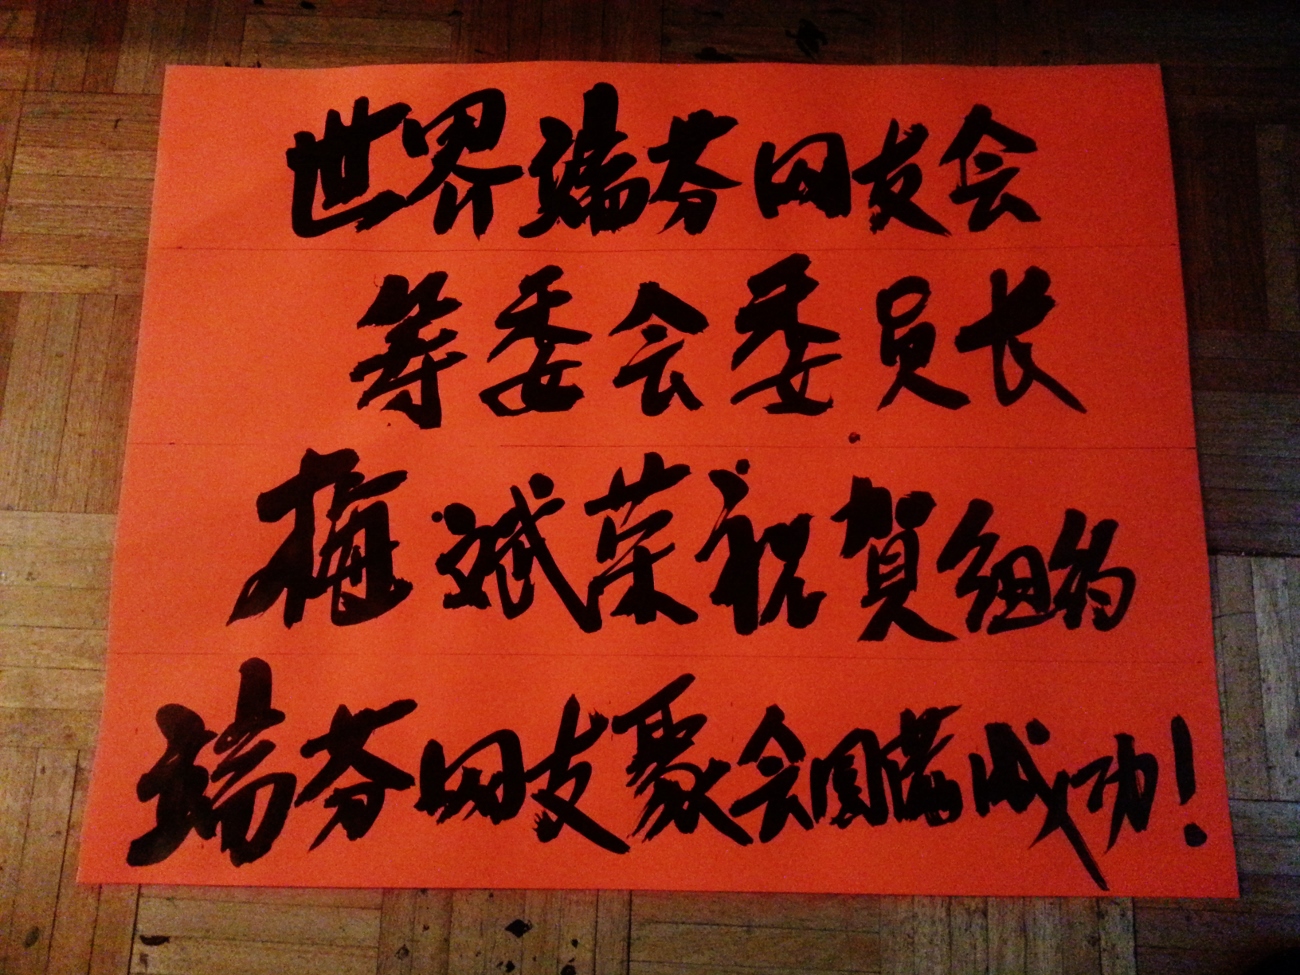 世界端芬网友会
筹委会委员长
梅斌荣祝賀纽约
端芬网友聚会圆满成功！